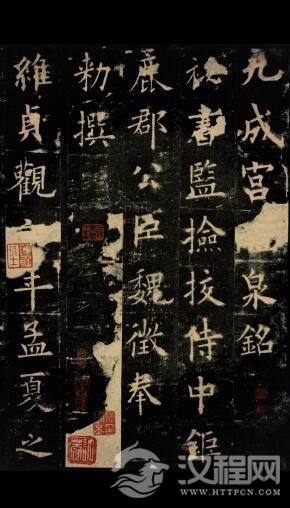 九成宮泉銘
秘書監撿挍侍中鉅
鹿郡公臣魏徵奉
勑撰
維貞觀年孟夏之
汉程网
HTTPCN.COM